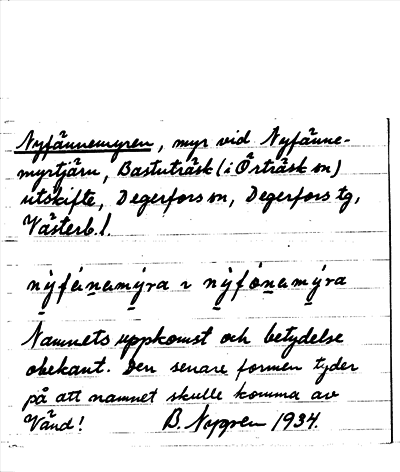 Nyfännemyren, myr vid Nyfänne-
myrtjärn, Bastuträsk (i Örträsk sn)
utskifte, Degerfors sn, Degerfors tg,
Västerb. l.
nỳfánamýra ɿ nỳfónamýra
Namnets uppkomst och betydelse
obekant. Den senare formen tyder
på att namnet skulle komma av
Vänd! B. Nygren 1934.